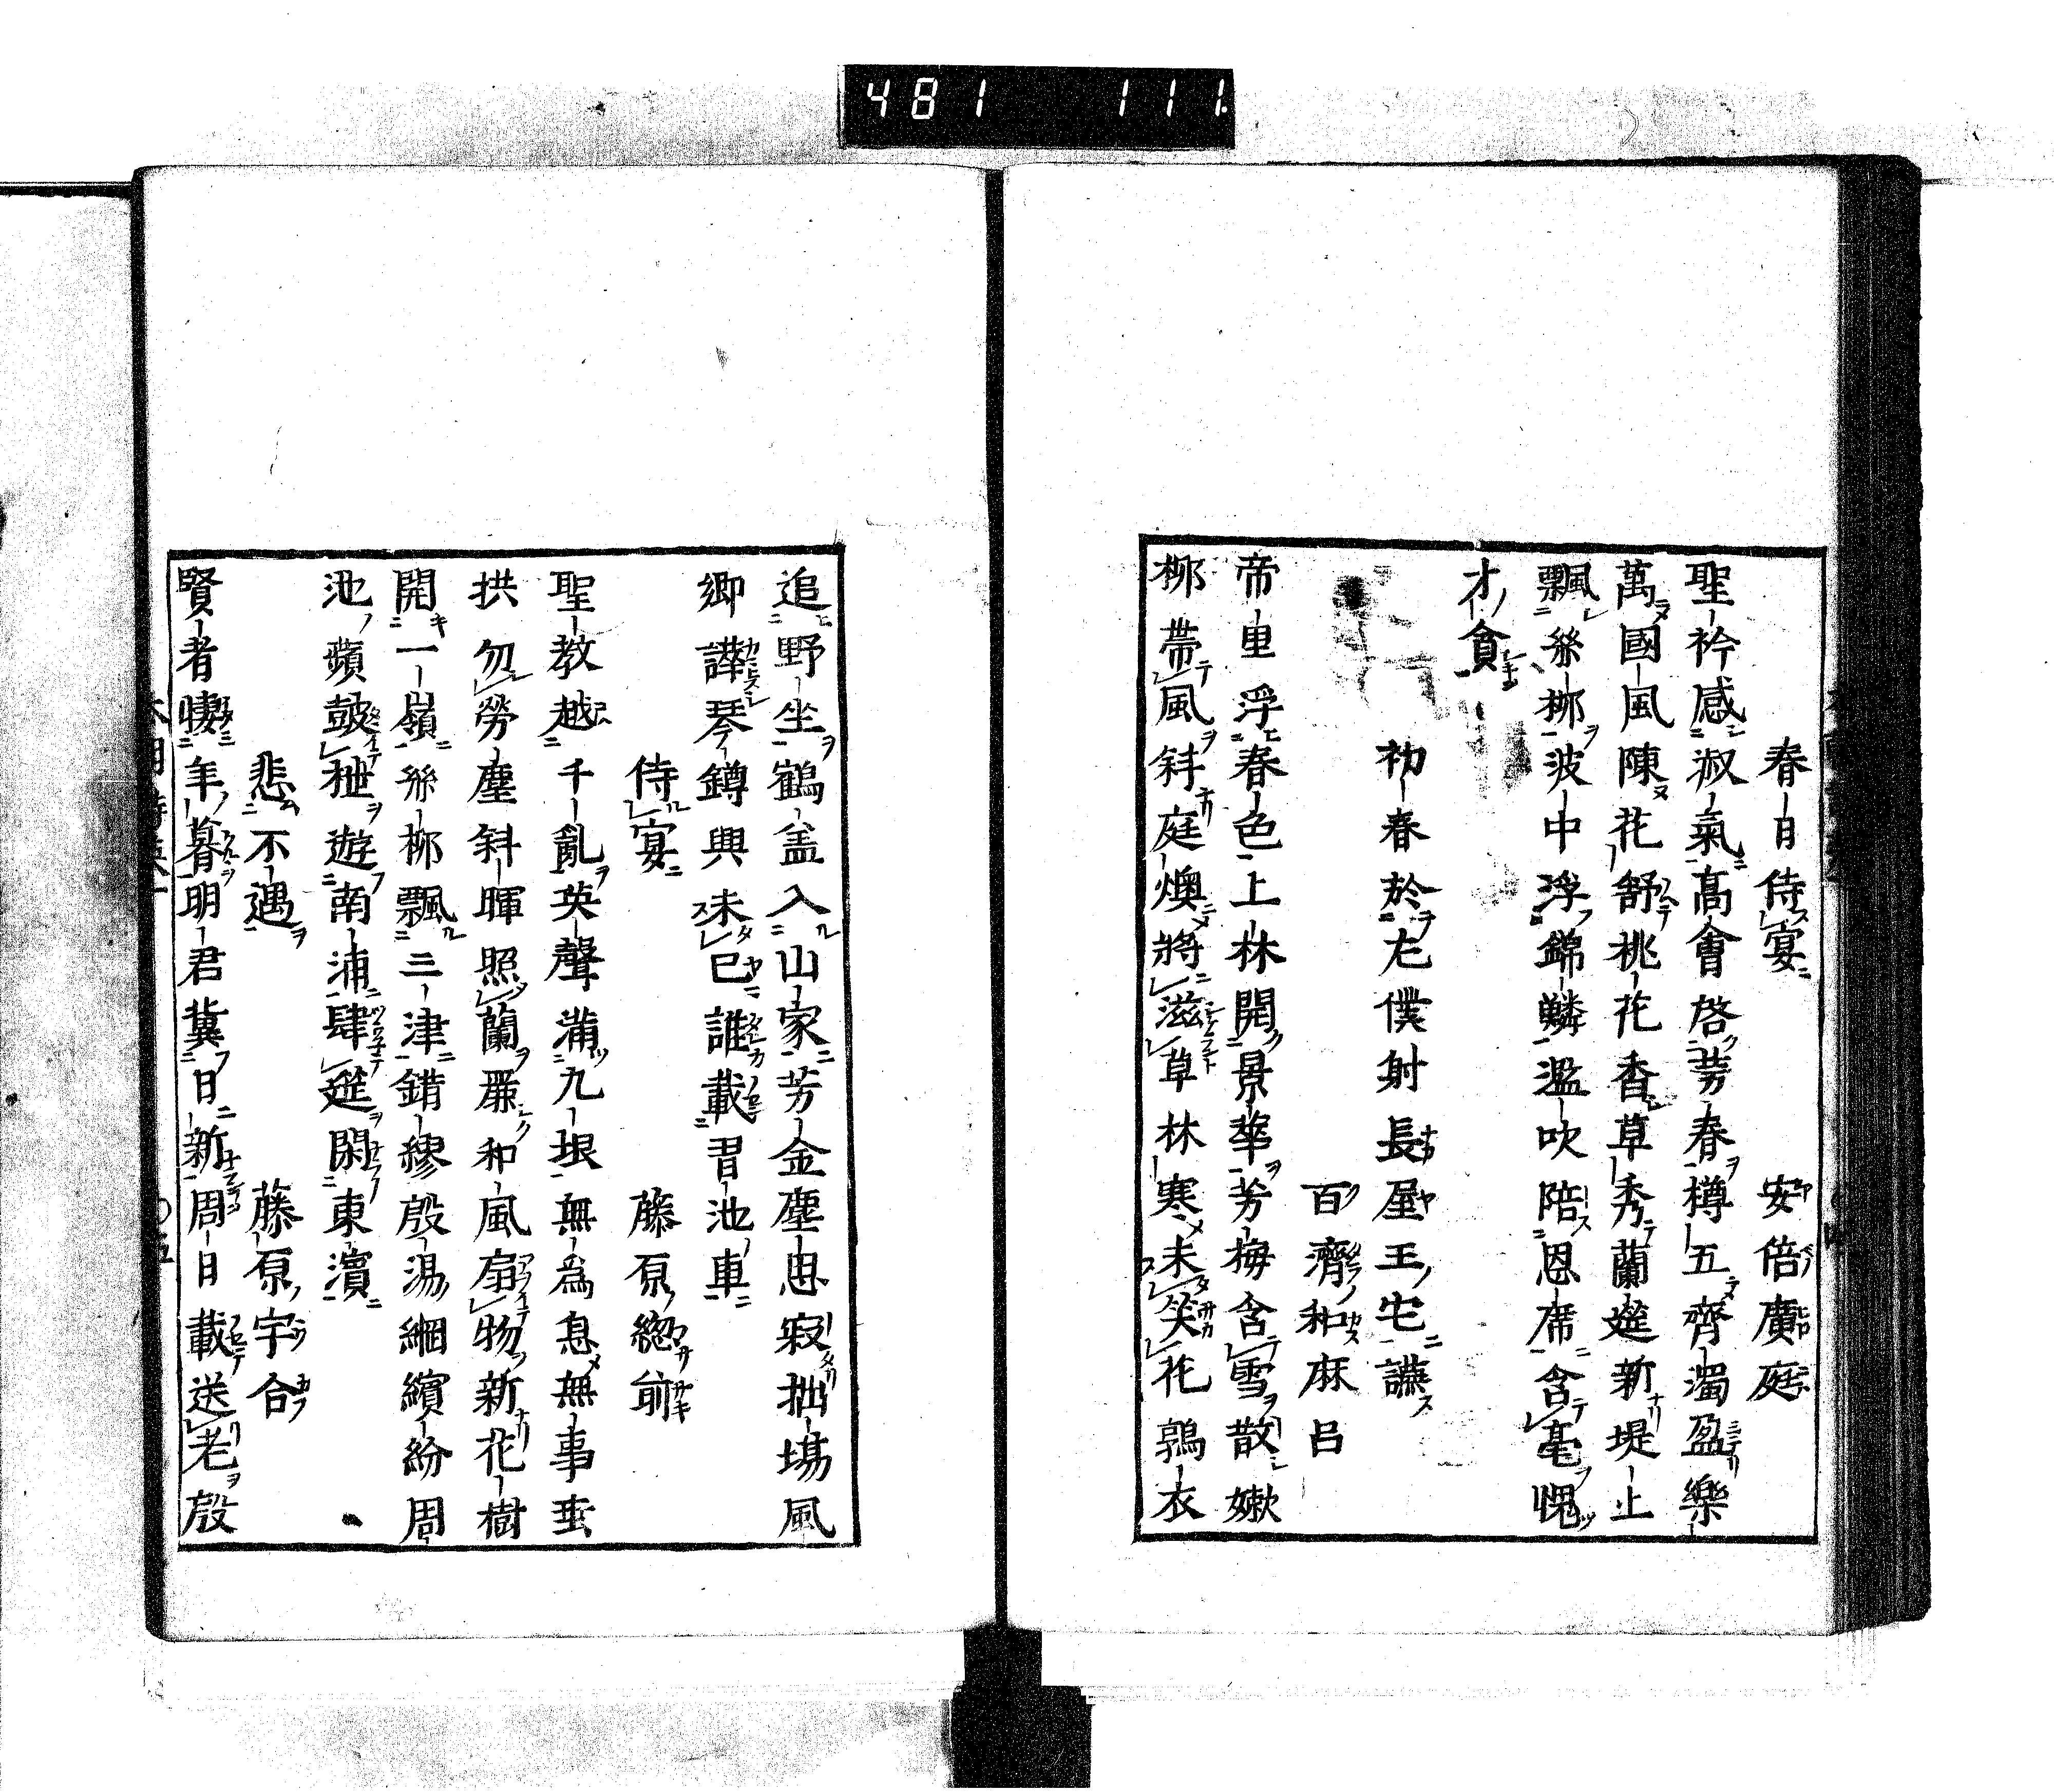 481 111
春日侍宴 安倍廣庭
聖衿感淑氣髙會啓芳春樽五齊濁盈樂
萬國風陳花舒桃花香草秀蘭筵新堤上
飄絲柳波中浮錦鱗濫吹陪恩席含毫愧
才貪
初春於左僕射長屋王宅讌
百濟和麻呂
帝里浮春色上林開景華芳梅含雪散嫩
柳帶風斜庭燠將滋草林寒未笑花鶉衣
追野坐鶴盖入山家芳金塵思寂拙塲風
卿譁琴罇興未已誰載習池車
侍宴 藤原總前
聖教越千䘏英聲滿九垠無為息無事垂
拱勿勞塵斜暉照蘭麗和風扇物新花樹
開一嶺絲柳飄三津錯繆殷湯網繽紛周
池蘋皷枻遊南浦肆筵閑東濱
悲不遇 藤原宇合
賢者悽年暮明君冀日新周日載送老殷